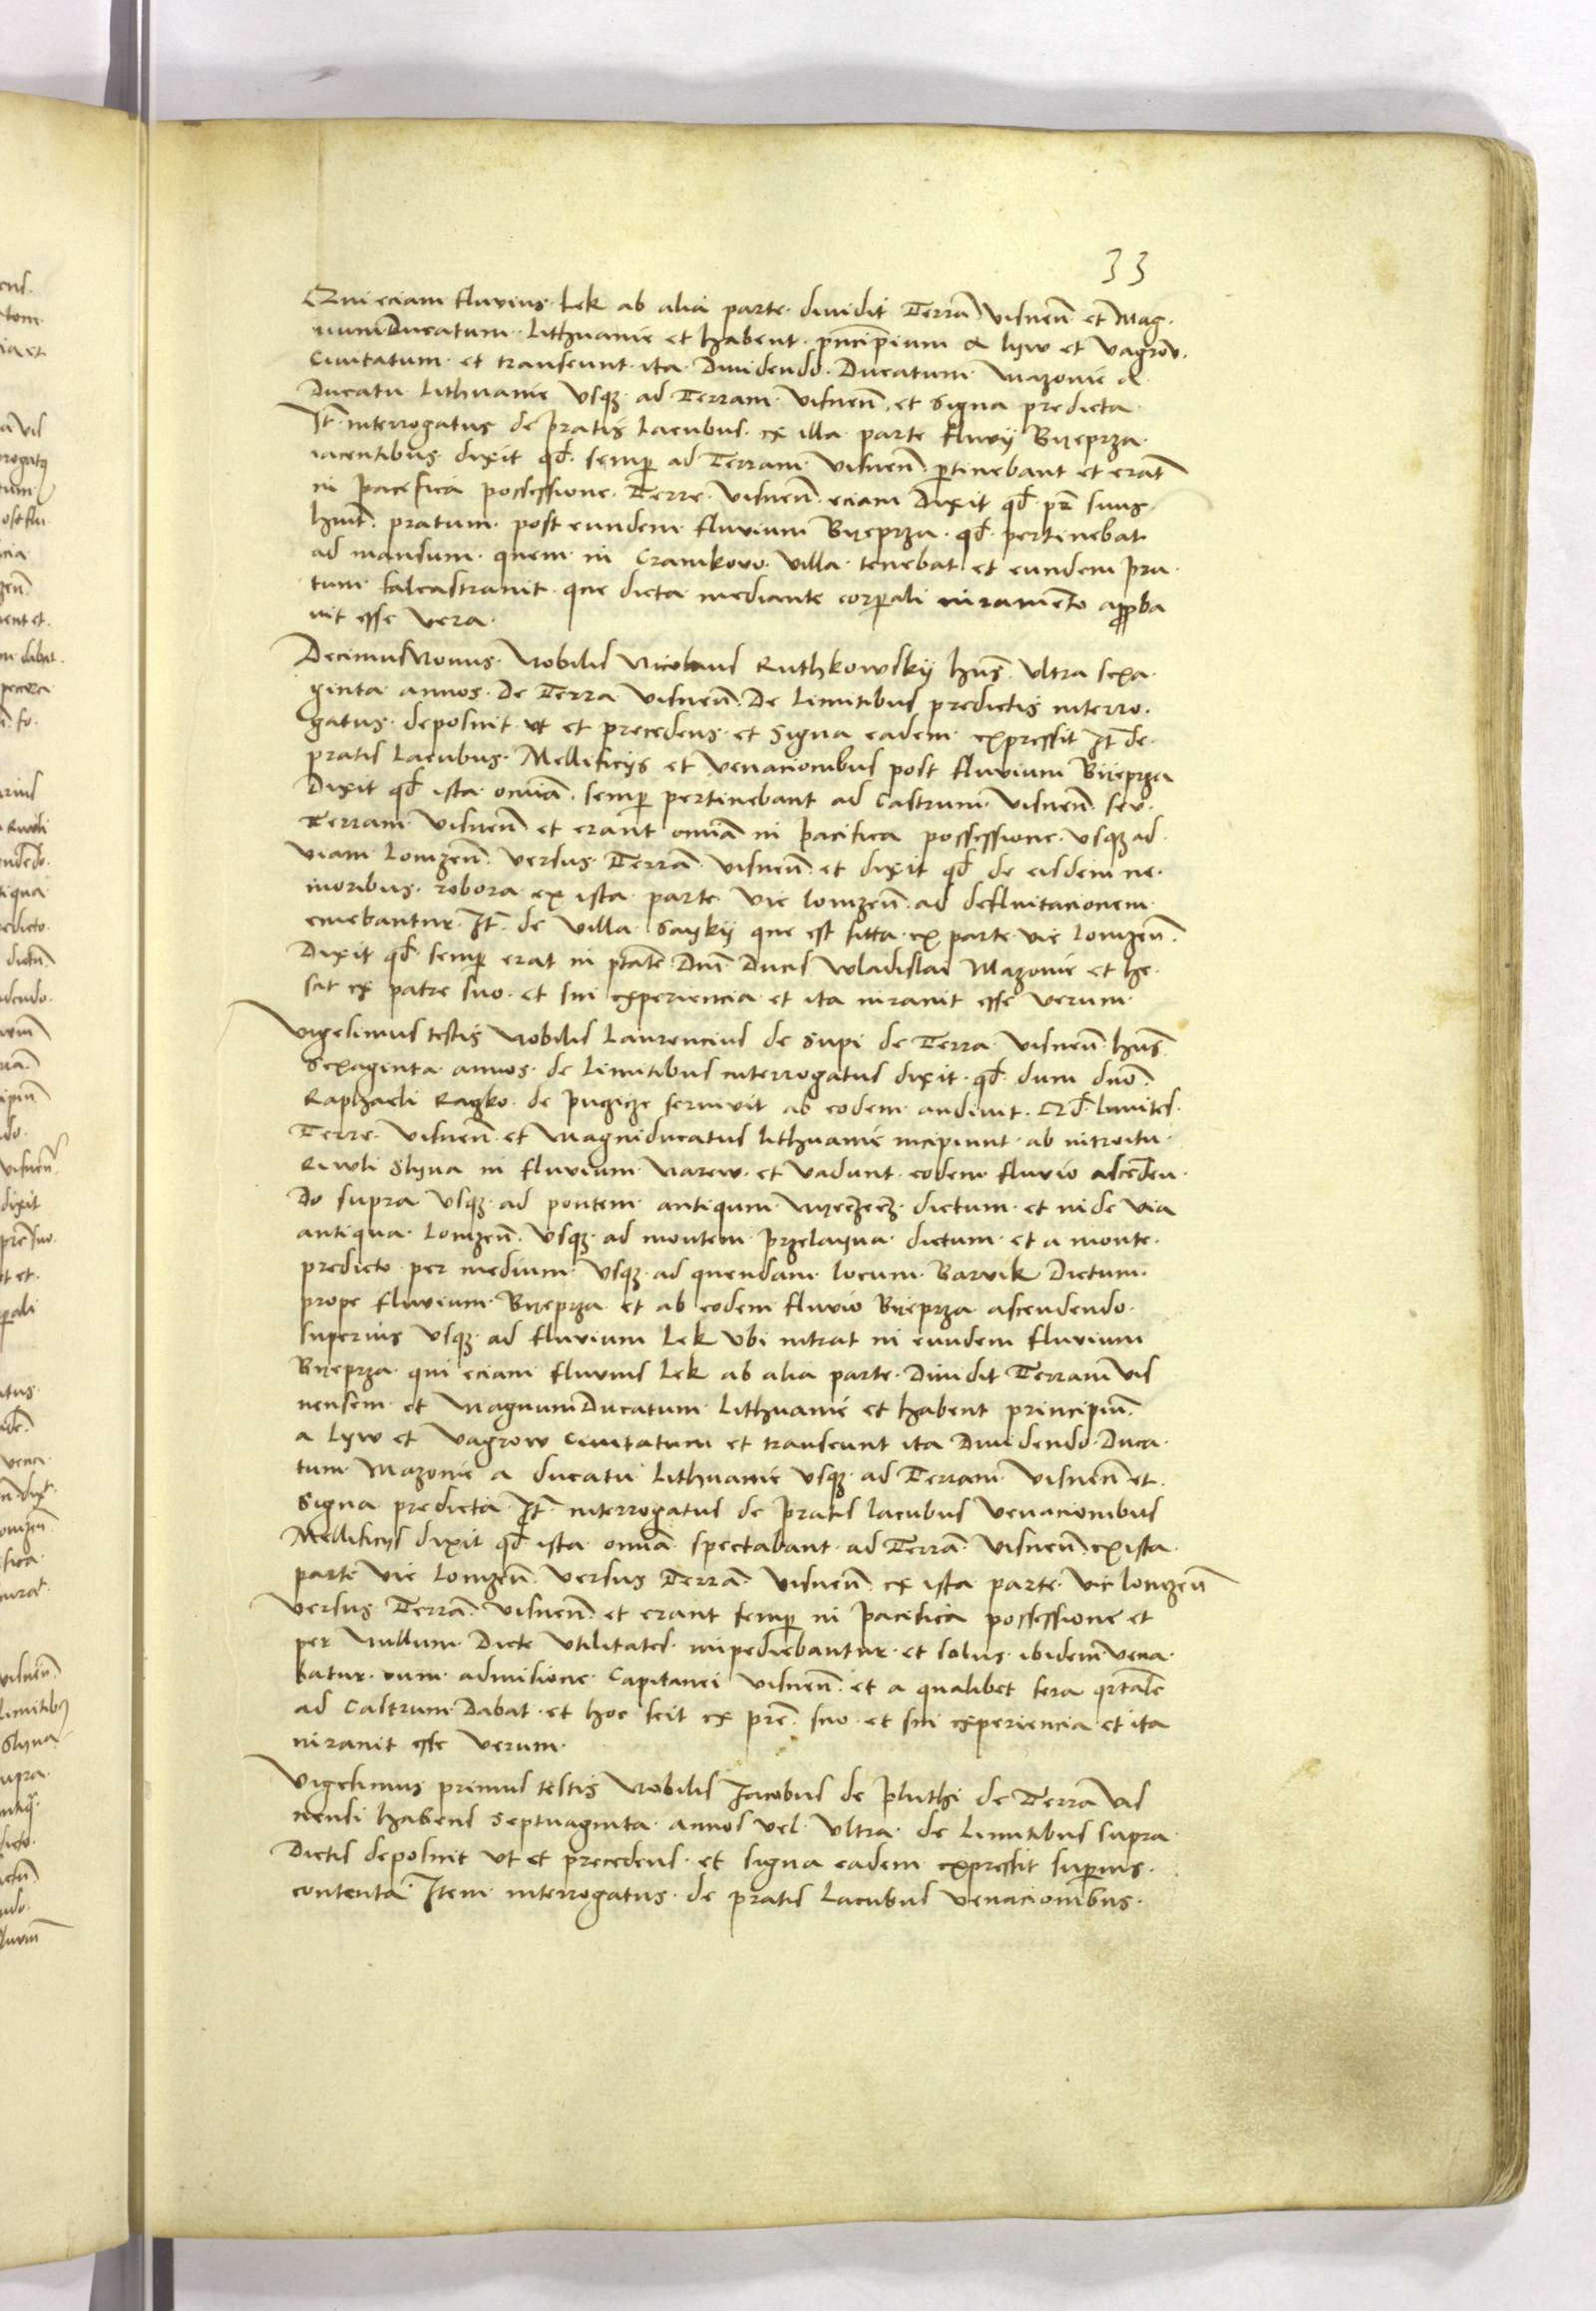 33
Qui eciam fluvius Lek ab alia parte dividit Terrā Visnen̄ et Mag
numDucatum Lithuanie et habent pn̄cipium a lyw et Vagrow
Civitatum et transeunt ita Dividendo Ducatum Mazovie a
Ducatu Lithuanie Vsqz ad Terram Visnen̄ et Signa predicta
It̄ interrogatus de pratis Lacubus ex illa parte fluvij Byeprza
iacentibus dixit qd̄ semp̄ ad Terram Visnen̄ p̄tinebant et erāt
in pacefica possessione Terre Visnen̄ eciam Dixit qd̄ pr̄ suus
huit̄ pratum post eundem fluvium Byeprza qd̄ pertinebat
ad mansum quem in Cramkovo Villa tenebat et eundem pra
tum falcastravit que dicta mediante corp̄ali iuramēto app̄ba
vit esse vera
DecimusNonus Nobilis Nicolaus Ruthkowskij hn̄s Vltra sexa
ginta annos De Terra Visnen̄ De Limitibus predictis interro
gatus deposuit vt et precedens et Signa eadem expressit It̄ de
pratis Lacubus Mellificijs et Venacionibus post fluvium Byeprza
Dixit qd̄ ista omīa semp̄ pertinebant ad Castrum Visnen̄ seu
Terram Visnen̄ et erant omīa in pacifica possessione Vsqz ad
Viam Lomzen̄ Versus Terrā Visnen̄ et dixit qd̄ de eisdem ne
moribus robora ex ista parte Vie lomzen̄ ad defluitacionem
emebantur It̄ de Villa Sayky que est sitta ex parte vie Lomzen̄
Dixit qd̄ semp̄ erat in ptāte Dn̄i Ducis Wladislai Mazovie et he
sit ex patre suo et sui experiencia et ita iuravit esse Verum
Vigesimus testis Nobilis Laurencius de Supi de Terra Visnen̄ hn̄s
Sexaginta annos de Limitibus interrogatus dixit qd̄ dum dn̄o
Raphaeli Razko de Pugicze servivit ab eodem audivit Qd̄ limites
Terre Visnen̄ et Magniducatus lithuanie incipiunt ab introitu
Riwli Slyna in fluvium Narew et Vadunt eodem fluvio ascēden
Do supra Vsqz ad pontem antiqum dictum et inde Via
antiqua Lomzen̄ Vsqz ad montem Przelayna dictum et a monte
predicto per medium Vsqz ad quendam locum Barvik Dictum
prope fluvium Byeprza et ab eodem fluvio Byeprza ascendendo
superius Vsqz ad fluvium Lek Vbi intrat in eundem fluvium
Byeprza qui eciam fluvius Lek ab alia parte Dividit Terram Vis
nensem et MagnumDucatum Lithuanie et habent principiū
a Lyw et Vagrow Civitatum et transeunt ita Dividendo Duca
tum Mazovie a ducatu Lithuanie Vsqz ad Terram Visnen̄ et
Signa predicta It̄ interrogatus de pratis lacubus Venacionibus
Mellificijs dixit qd̄ ista omīa spectabant ad Terrā Visnen̄ ex ista
parte Vie Lomzen̄ Versus Terrā Visnen̄ ex ista parte Vie lomzen̄
Versus Terrā Visnen̄ et erant semp̄ in pacifica possessione et
per Nullum Dicte Vtilitates impediebantur et solus ibidem vena
batur cum admisione Capitanei Visnen̄ et a qualibet fera qrtāle
ad Castrum Dabat et hoc scit ex prē suo et sui experiencia et ita
iuravit esse Verum
Vigesimus primus testis Nobilis Jacobus de pluthi de Terra Vis
nensi habens Septuaginta annos vel Vltra de Limitibus supra
Dictis deposuit vt et precedens et signa eadem expressit sup̄ius
contenta Item interrogatus de pratis Lacubus Venacionibus